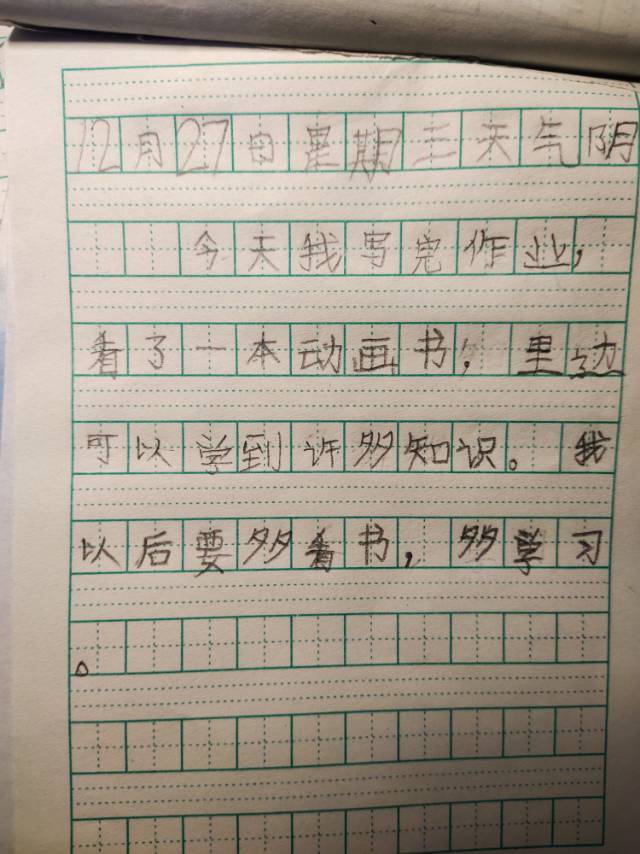 12月27日星期三天气阴
今天我写完作业,
看了一本动画书,里边
可以学到许多知识。我
以后要多看书,多学习
。